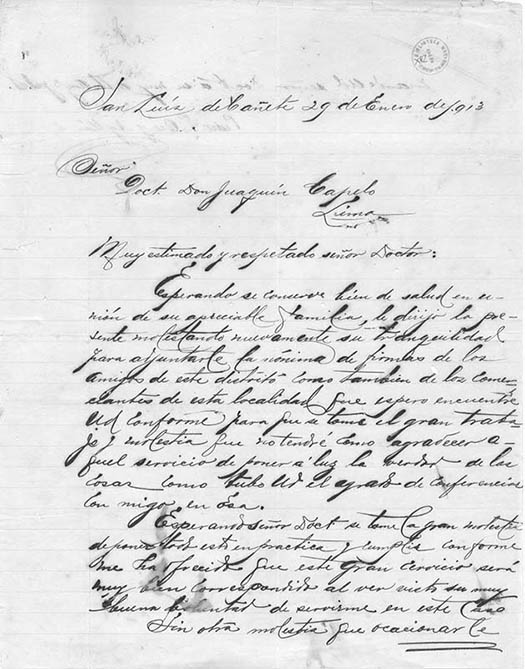 San Luís de Cañete 29 de Enero de 1913
Señor
Doct. Don Juaquín Capelo
Lima
Muy estimado y respetado señor Doctor:
Esperando se conserve bien de salud en u-
nión de su apreciable familia, le dirijo la pre-
sente molestando nuevamente su tranquilidad
para adjuntarle la nómina de firmas de los
amigos de este distrito como tambien de los comer-
ciantes de esta localidad que espero encuentre
Ud conforme para que se tome el gran traba-
jo y molestia que no tendré como agradecer a-
quel servicio de poner á luz la verdad de las
cosas como tubo Ud el agrado de conferenciar
con migo en ésa.
Esperando señor Doct se tome la gran molestia
de poner todo esto en practica y cumpla conforme
me ha ofrecido que este gran cervicio será
muy bien correspondido al ver visto su muy
buena voluntad de servirme en este caso
Sin otra molestia que ocacionarle